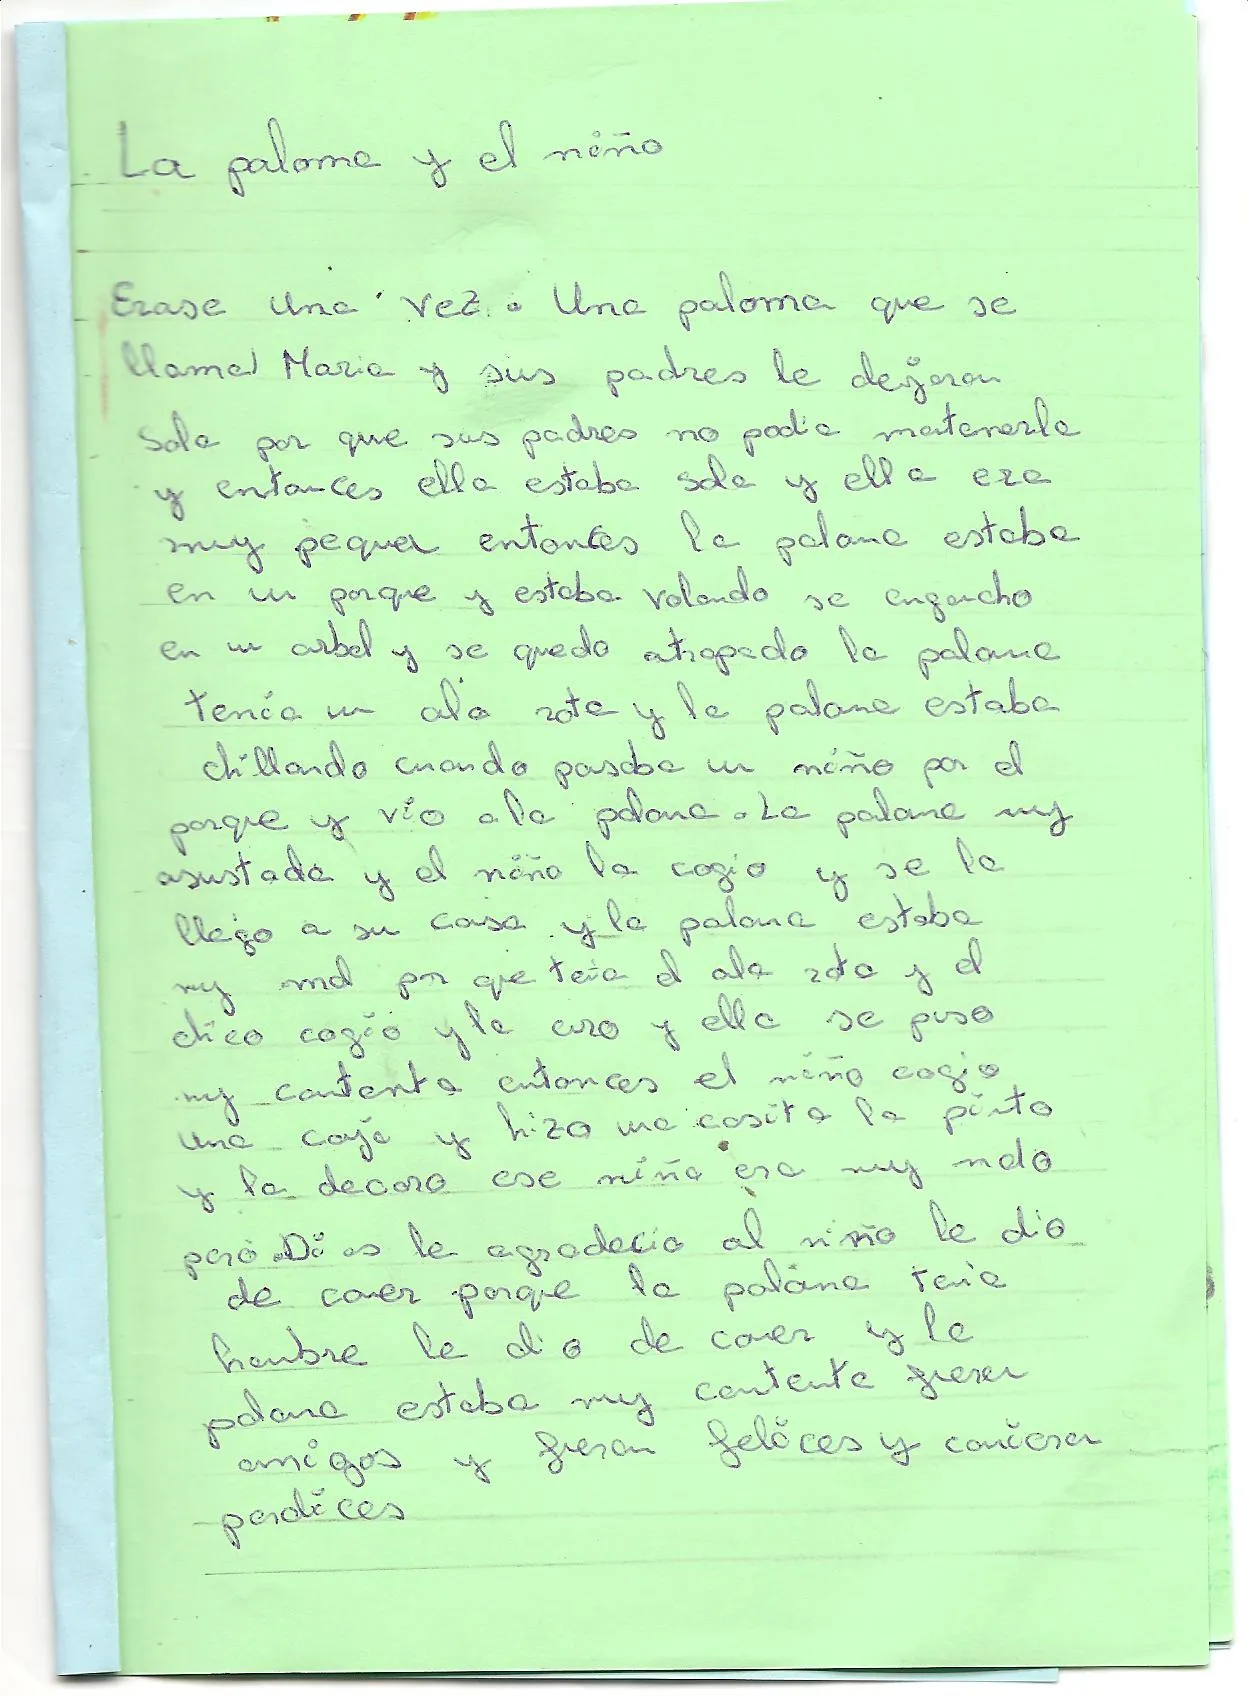 La paloma y el niño
Erase una vez. Una paloma que se
llamal Maria y sus padres le dejaron
Sola por que sus padres no podia matenerla
y entonces ella estaba sola y ella era
muy pequer entonces la paloma estaba
en un parque y estaba volando se engancho
en un arbol y se quedo atrapado la paloma
tenia un ala rota y la paloma estaba
chillando cuando pasaba un niño por el
parque y vio a la paloma. La paloma muy
asustada y el niño la cogio y se la
llego a su casa y la paloma estaba
muy mal por que teia el ala rota y el
chico cogio y la curo y ella se puso
muy contenta entonces el niño cogio
una caja y hizo una casita la pinto
y la decoro ese niño era muy malo
pero Dios le agradecio al niño le dio
de comer porque la paloma tenia
hambre le dio de comer y la
paloma estaba muy contenta fueron
amigos y fueron felices y comieron
perdices